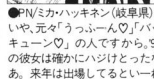 ●PN/ミカ・ハッキネン(岐阜県)
いや、元々「うっふーん♡」「バ
キューン♡」の人ですから。'9
の彼女は確かにハジけとった
あ。来年は出場してるといー